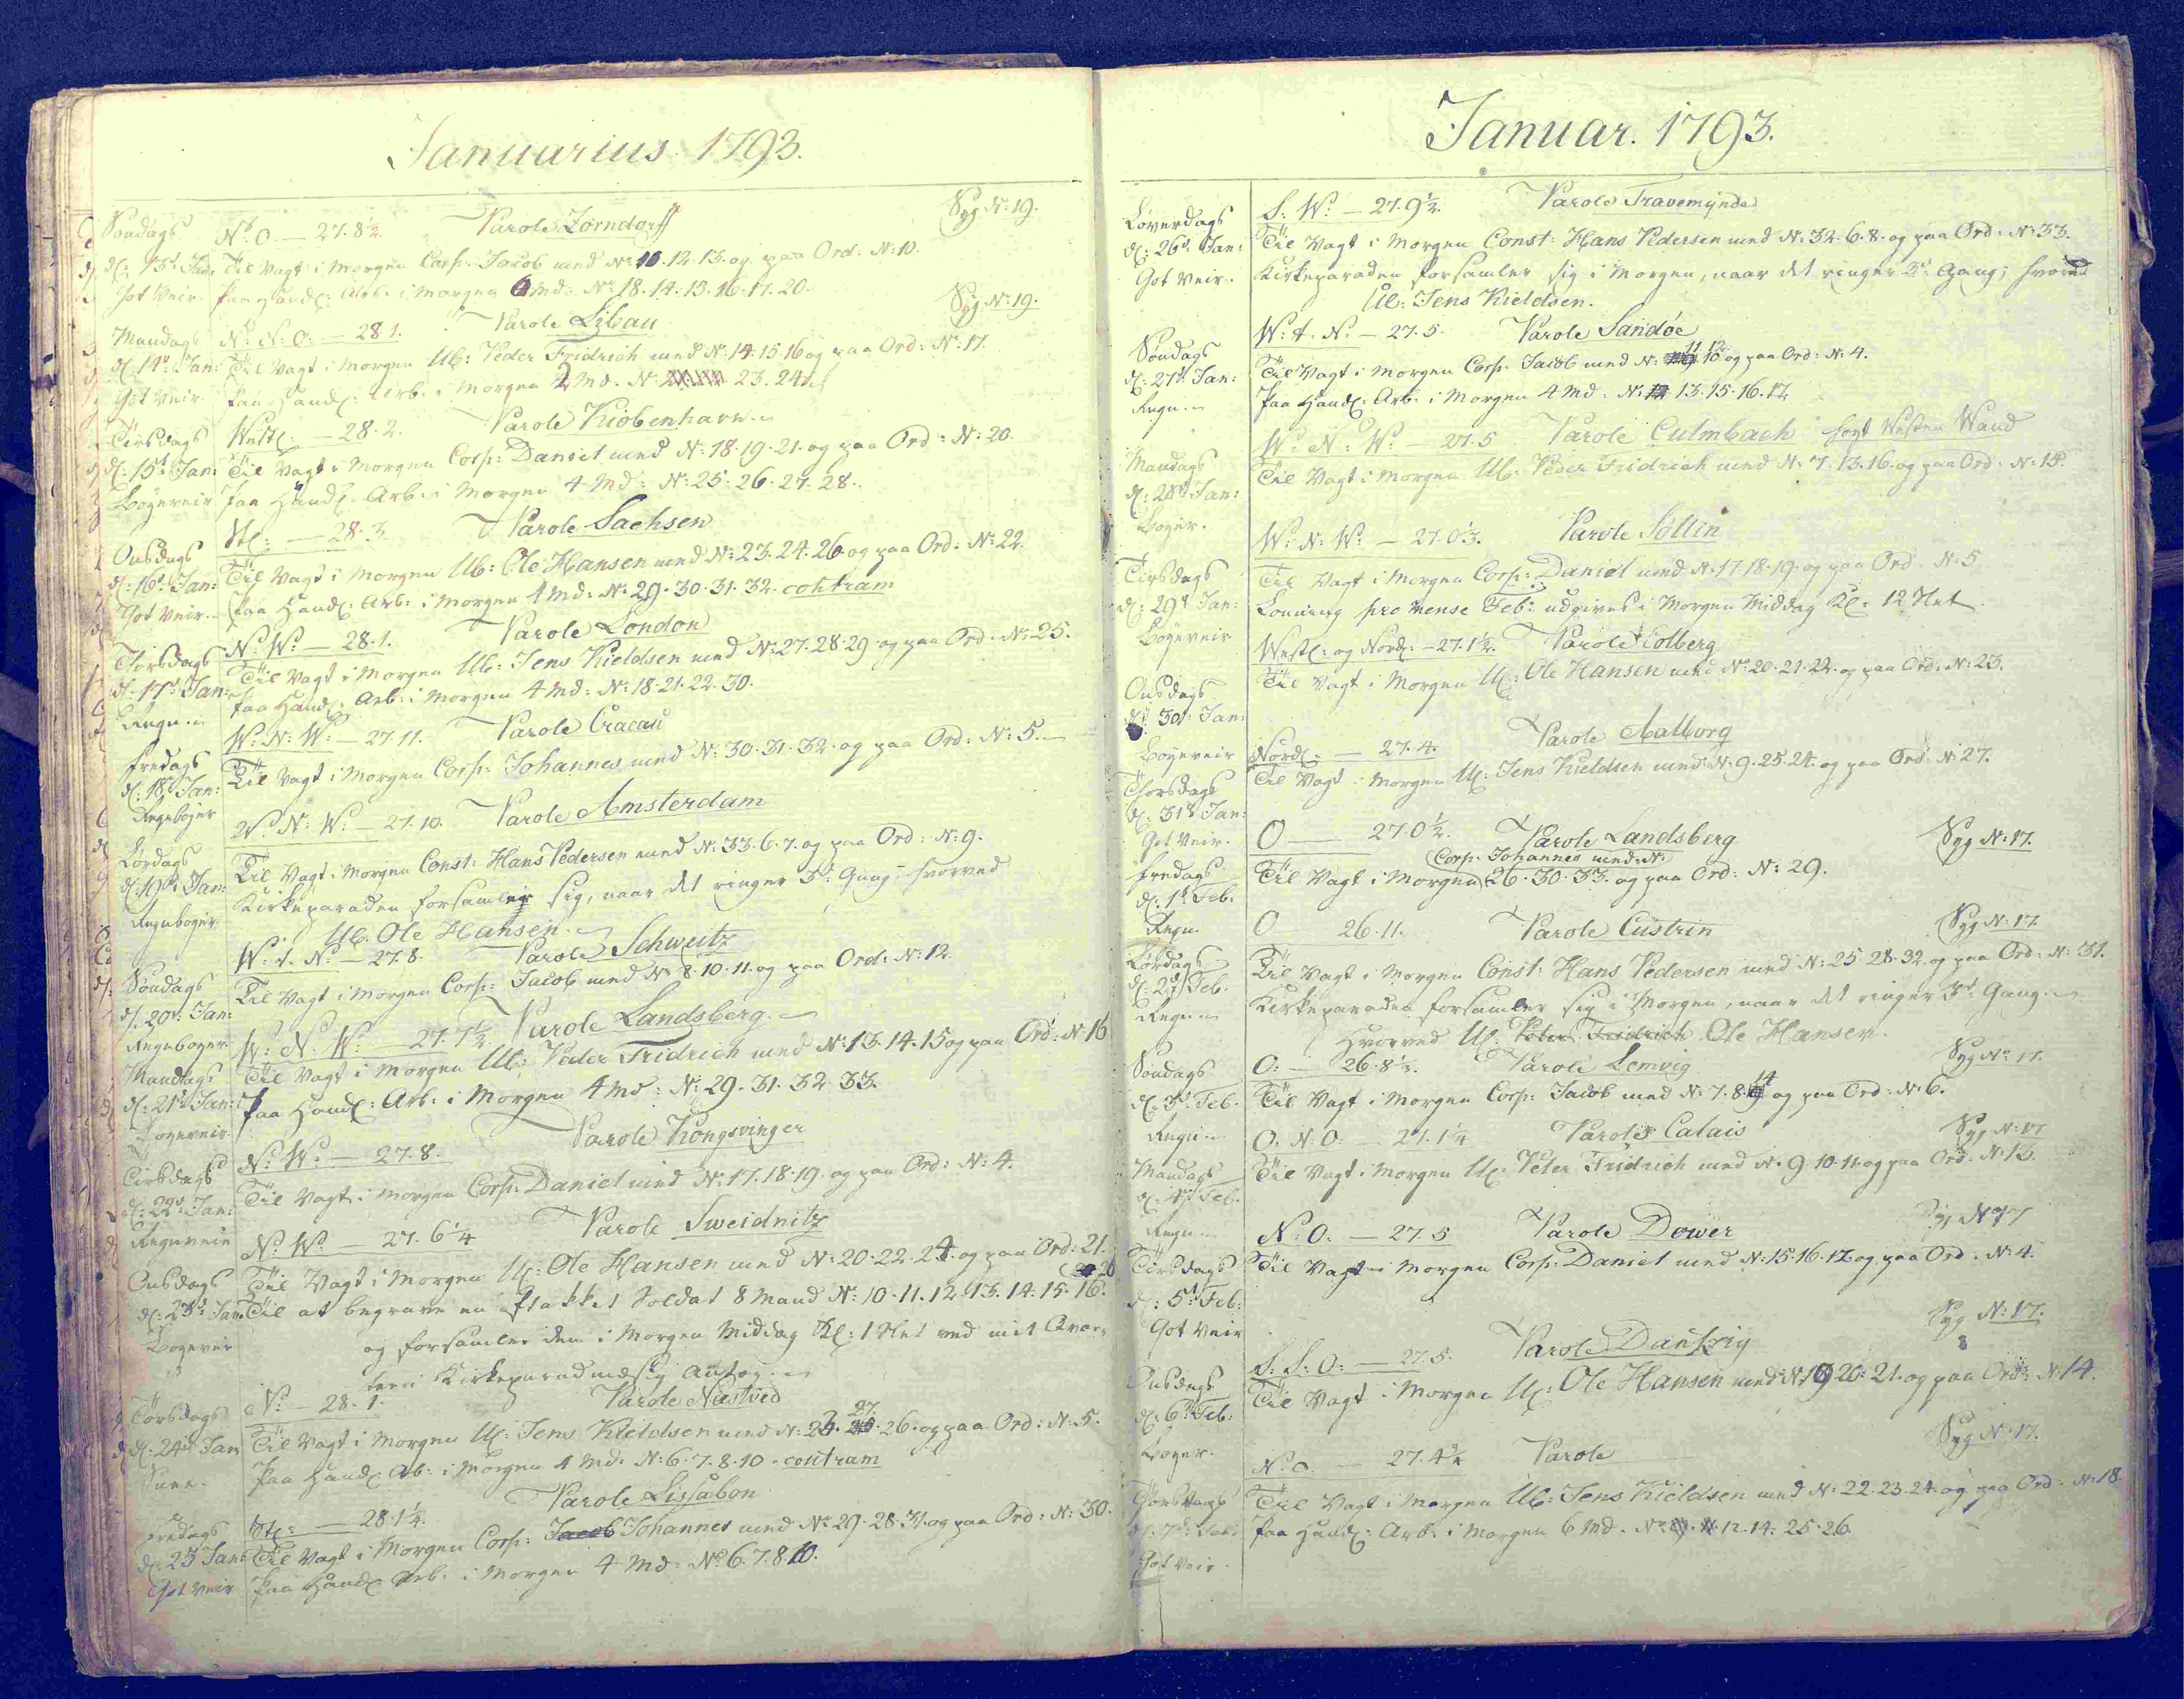 Januarius 1793.
Søndags N:O. — 27.8½. Parole Zorndorff Syg N:19.
d: 13d Jan: Til Vagt i Morgen Corp: Jacob med N: 11.12.13. og paa Ord: N:10.
Got Veir. paa Handl: Arb: i Morgen 6 Md: N: 18.14.15.16.17.20.
Mandags N:N:O: — 28.1. Parole Libau Syg N:19.
d: 14d Jan: Til Vagt i Morgen UC: Peder Fridrich med N: 14.15.16 og paa Ord: N: 17.
Got Veir paa Handl: Arb: i Morgen 2 Md. N: 23.24.
Tirsdags Westl: — 28.2. Parole Kiøbenhavn
d: 15d Jan: Til Vagt i Morgen Corp: Daniel med N: 18.19.21. og paa Ord: N: 20.
Bøyeveir paa Handl: Arb: i Morgen 4 Md: N: 25.26.27.28.
Onsdags Stl: — 28.3. Parole Sachsen
d: 16d Jan: Til Vagt i Morgen UC: Ole Hansen med N: 23.24.26 og paa Ord: N: 22.
Got Veir. paa Handl: Arb: i Morgen 4 Md: N: 29.30.31.32. contram
Torsdags N:W: — 28.1. Parole London
d: 17d Jan: Til Vagt i Morgen UC: Jens Kieldsen med N: 27.28.29 og paa Ord: N: 25.
Regn. paa Handl: Arb: i Morgen 4 Md: N: 18.21.22.30.
fredags W:N:W: — 27.11. Parole Cracau
d: 18d Jan: Til Vagt i Morgen Corp: Johannes med N: 30.31.32. og paa Ord: N: 5.
Regnbøyer
Lørdags W:N:W: — 27.10. Parole Amsterdam
d: 19d Jan: Til Vagt i Morgen Const: Hans Pedersen med N: 33.6.7. og paa Ord: N: 9.
Regnbøyer Kirkeparaden forsamler sig, naar det ringer 3d Gang, hvorved
UC: Ole Hansen.
Søndags W:t.N: — 27.8. Parole Schweitz
d: 20d Jan: Til Vagt i Morgen Corp: Jacob med N: 8.10.11. og paa Ord: N: 12.
Regnbøyer
Mandags W:N:W: — 27.7½. Parole Landsberg.
d: 21d Jan: Til Vagt i Morgen UC: Peder Fridrich med N: 13.14.15 og paa Ord: N: 16
Bøyeveir paa Handl: Arb: i Morgen 4 Md: N: 29.31.32.33.
Tirsdags N:W: — 27.8. Parole Kongsvinger
d: 22d Jan: Til Vagt i Morgen Corp: Daniel med N: 17.18.19. og paa Ord: N: 4.
Regnveir
Onsdags N:W: — 27.6¼ Parole Sweidnitz
d: 23d Jan: Til Vagt i Morgen UC: Ole Hansen med N: 20.22.24. og paa Ord: 21.
Til at begrave en Stakkel Soldat 8 Mand N: 10.11.12.13.14.15.16. 20
og forsamler dem i Morgen Middag Kl: 1 Slet ved mit Qvar-
teer i Kirkeparademæsig Antog.
Torsdags N: — 28.1. Parole Næstved
d: 24d Jan: Til Vagt i Morgen UC: Jens Kieldsen med N: 23. 27. 26. og paa Ord: N: 5.
paa Handl: Arb: i Morgen 4 Md: N: 6.7.8.10. contram
fredags Stl: — 28.1¼. Parole Lissabon
d: 25 Jan: Til Vagt i Morgen Corp: Jacob Johannes med N: 29.28.31. og paa Ord: N: 30.
Got Veir paa Handl: Arb: i Morgen 4 Md: N: 6.7.8.10.
Januar. 1793.
Løverdags S:W: — 27.9½. Parole Travemynde
d: 26d Jan: Til Vagt i Morgen Const: Hans Pedersen med N: 32.6.8. og paa Ord: N: 33.
Got Veir. Kirkeparaden forsamler sig i Morgen, naar det ringer 3d Gang; hvorved
UC: Jens Kieldsen.
Søndags W:t.N: — 27.5. Parole Sandøe
d: 27d Jan: Til Vagt i Morgen Corp: Jacob med N: 11.12. 10. og paa Ord: N: 4.
Regn. paa Handl: Arb: i Morgen 4 Md: N: 13.15.16.17.
Mandags W:N:W: — 27.5 Parole Culmbach høyt Westen Wand
d: 28d Jan: Til Vagt i Morgen UC: Peder Fridrich med N: 7.13.16. og paa Ord: N: 15.
Bøyer.
Tirsdags W:N:W: — 27.0⅓. Parole Sollin
d: 29d Jan: Til Vagt i Morgen Corp: Daniel med N: 17.18.19. og paa Ord: N: 5
Bøyeveir Lønning pro mense Feb: udgives i Morgen Middag Kl: 12 Slet
Onsdags Westl: og Nordl: — 27.1½. Parole Colberg
d: 30d Jan: Til Vagt i Morgen UC: Ole Hansen med N: 20.21.22. og paa Ord: N: 23.
Bøyeveir
Torsdags Nordl: — 27.4. Parole Aalborg
d: 31d Jan: Til Vagt i Morgen UC: Jens Kieldsen med N: 9.25.24. og paa Ord: N: 27.
Got Veir.
fredags O — 27.0½. Parole Landsberg Syg N: 17.
Corp: Johannes med N:
d: 1d Feb: Til Vagt i Morgen 26.30.33. og paa Ord: N: 29.
Regn.
Lørdags O 26.11. Parole Custrin Syg N: 17.
d: 2d Feb. Til Vagt i Morgen Const: Hans Pedersen med N: 25.28.32. og paa Ord: N: 31.
Regn Kirkeparaden forsamler sig i Morgen, naar det ringer 3d Gang.
hvorved UC: Peter Fridrich Ole Hansen.
Søndags O: — 26.8½. Parole Lemvig Syg N: 17.
d: 3d Feb. Til Vagt i Morgen Corp: Jacob med N: 7.8. 14 og paa Ord: N: 6.
Regn
Mandags O.N.O: — 27.1¼ Parole Calais Syg N: 17
d: 4d Feb. Til Vagt i Morgen UC: Peter Fridrich med N: 9.10.11. og paa Ord: N: 13.
Regn
Tirsdags N:O: — 27.5 Parole Dower Syg N: 17
d: 5d Feb: Til Vagt i Morgen Corp: Daniel med N: 15.16.12. og paa Ord: N: 4.
Got Veir
Onsdags S:S:O: — 27.5. Parole Dantzig Syg N: 17.
d: 6d Feb: Til Vagt i Morgen UC: Ole Hansen med N: 19 20.21. og paa Ord: N: 14.
Bøyer.
Torsdags N:O. — 27.4 Parole Syg N: 17.
d: 7d Feb: Til Vagt i Morgen UC: Jens Kieldsen med N: 22.23.24. og paa Ord: N: 18.
Got Veir. paa Handl: Arb: i Morgen 6 Md. N: 12.14.25.26